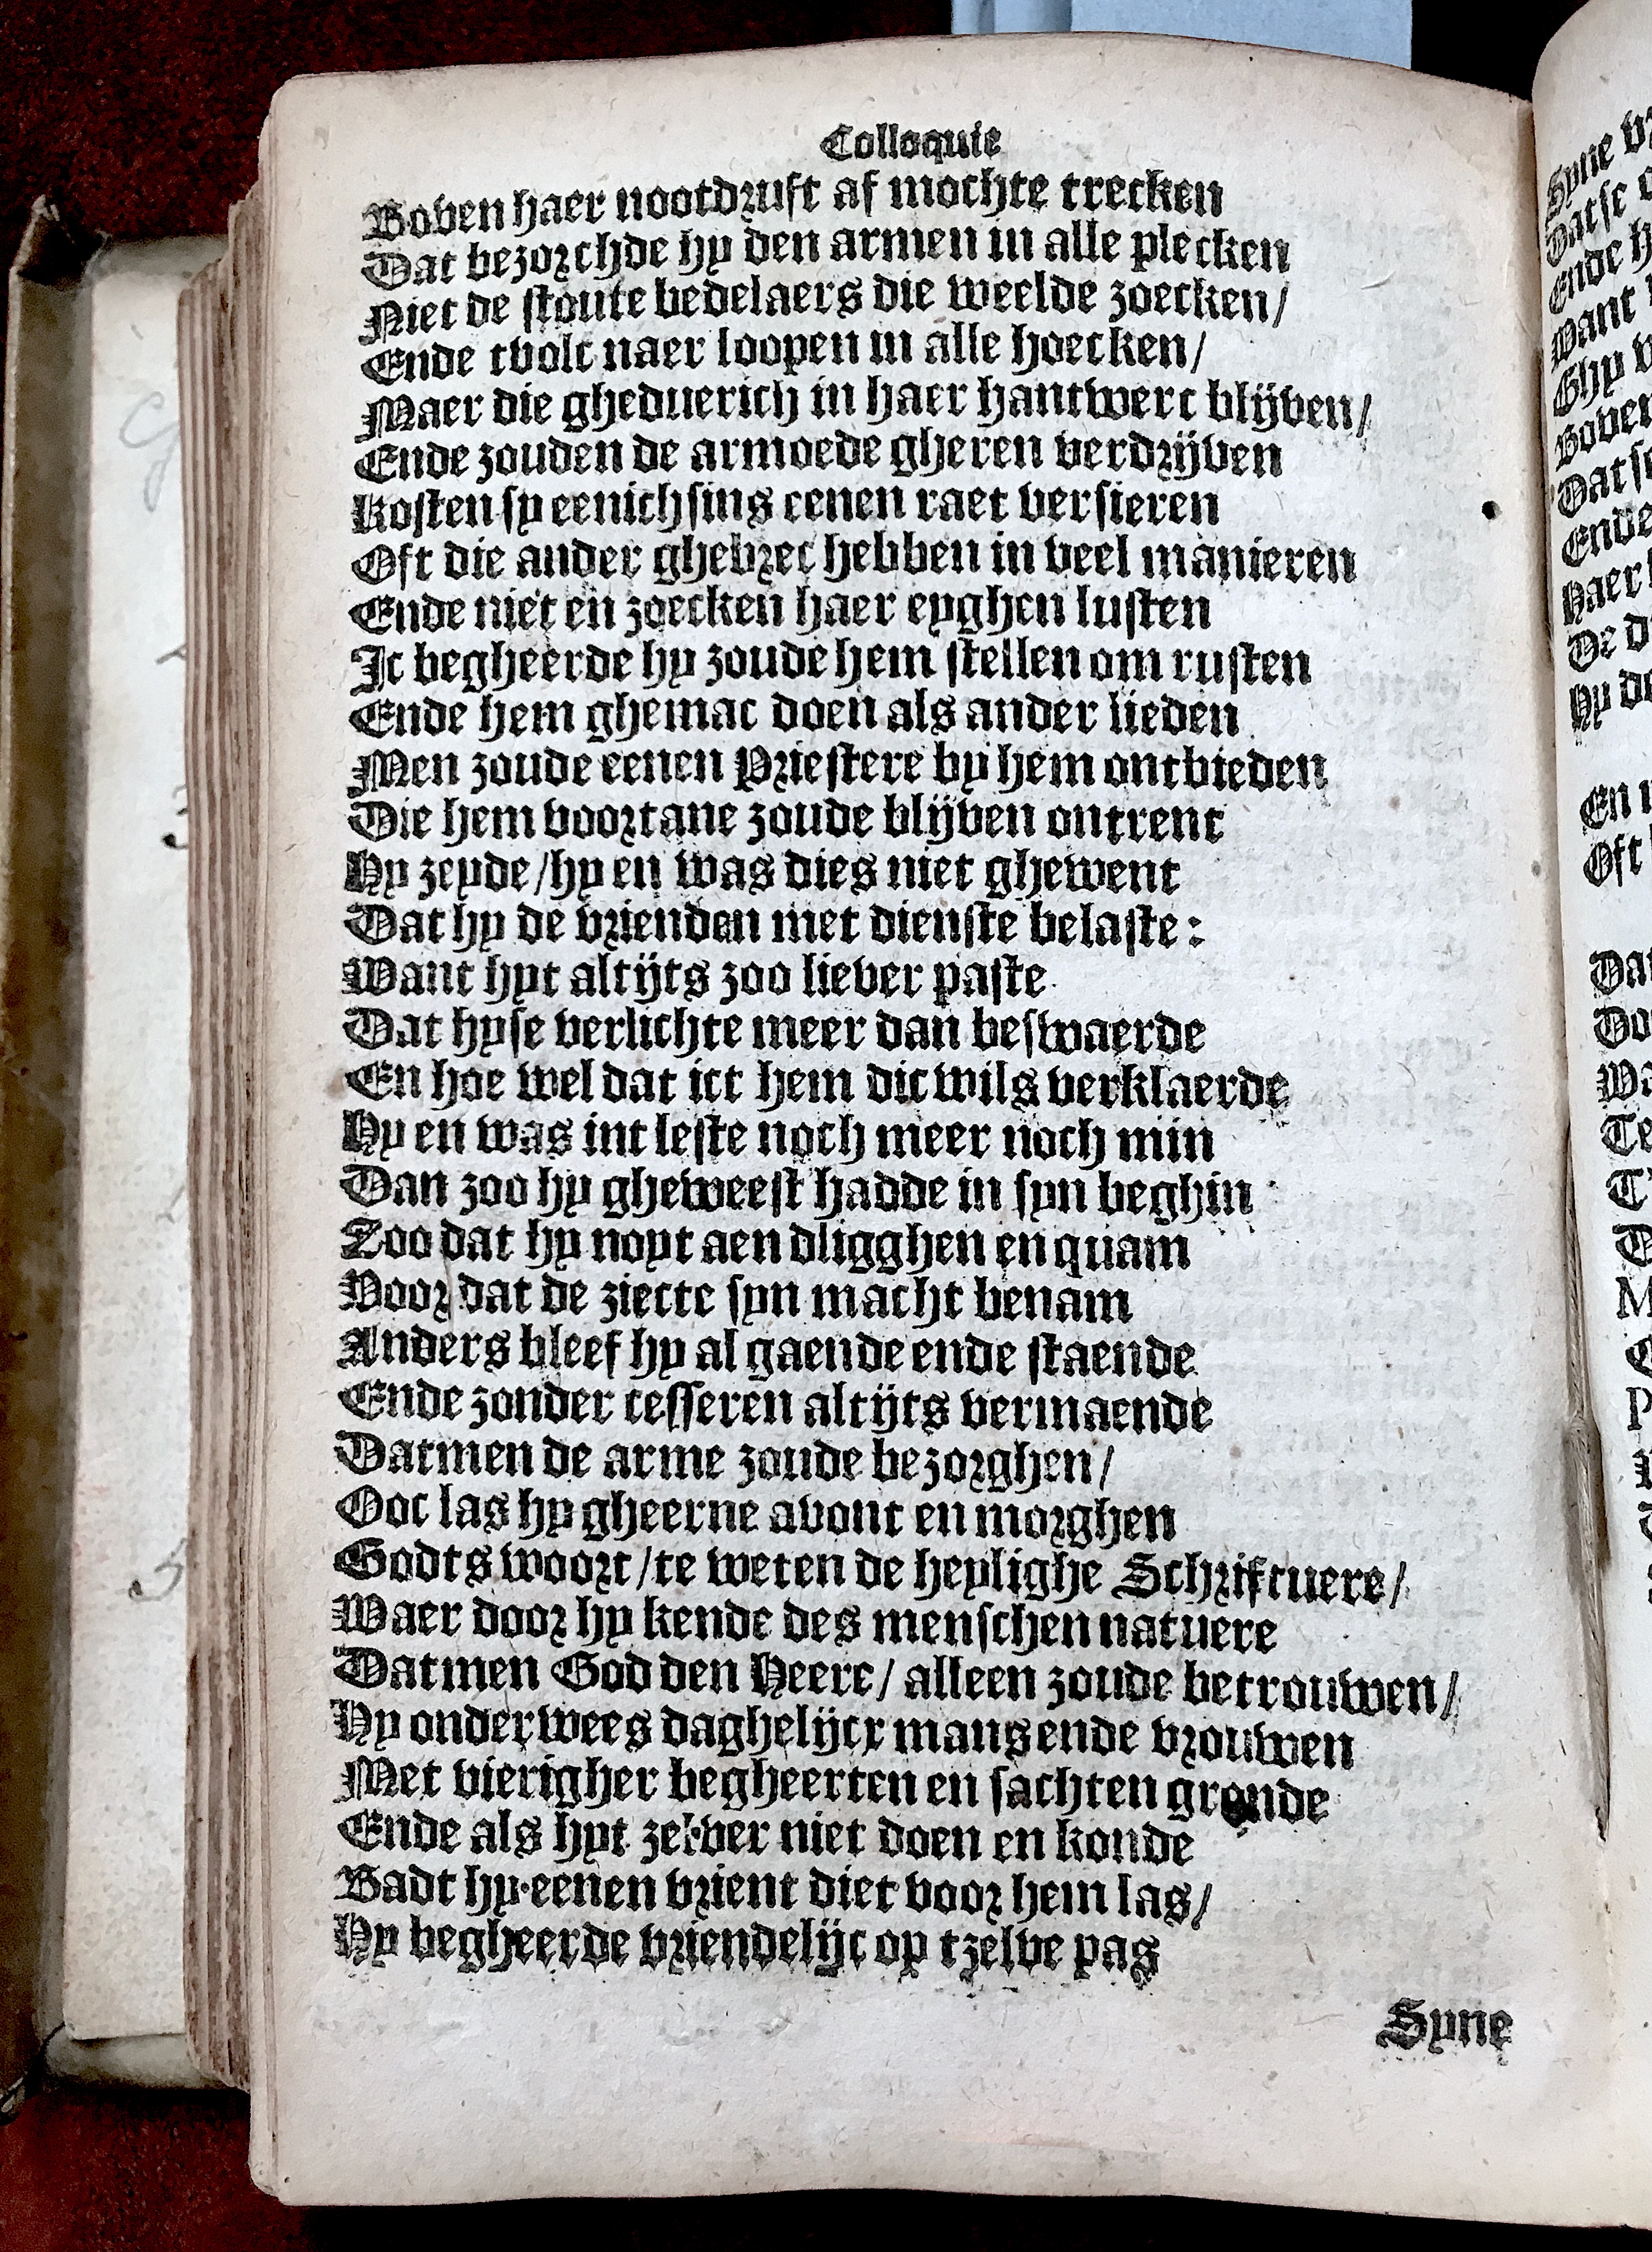 Colloquie
Boven haer nootdruft af mochte trecken
Dat bezorchde hy den armen in alle plecken
Niet de stoute bedelaers die weelde zoecken/
Ende tvolc naer loopen in alle hoecken/
Maer die gheduerich in haer hantwerc blijven/
Ende zouden de armoede gheren verdrijven
Kosten sy eenichsins eenen raet versieren
Oft die ander ghebrec hebben in veel manieren
Ende niet en zoecken haer eyghen lusten
Ic begheerde hy zoude hem stellen om rusten
Ende hem ghemac doen als ander lieden
Men zoude eenen Priestere by hem ontbieden
Die hem voortane zoude blijven ontrent
Hy zeyde/hy en was dies niet ghewent
Dat hy de vrienden met dienste belaste:
Want hyt altijts zoo liever paste
Dat hyse verlichte meer dan beswaerde
En hoe wel dat ict hem dicwils verklaerde
Hy en was int leste noch meer noch min
Dan zoo hy gheweest hadde in syn beghin
Zoo dat hy noyt aen dligghen en quam
Voor dat de ziecte syn macht benam
Anders bleef hy al gaende ende staende
Ende zonder cesseren altijts vermaende
Datmen de arme zoude bezorghen/
Ooc las hy gheerne avont en morghen
Godts woort/te weten de heylighe Schriftuere/
Waer door hy kende des menschen natuere
Datmen God den Heere/ alleen zoude betrouwen/
Hy onderwees daghelijcx mans ende vrouwen
Met vierigher begheerten en sachten gronde
Ende als hyt zelver niet doen en konde
Badt hy eenen vrient diet voor hem las/
Hy begheerde vriendelijc op tzelve pas
Syne